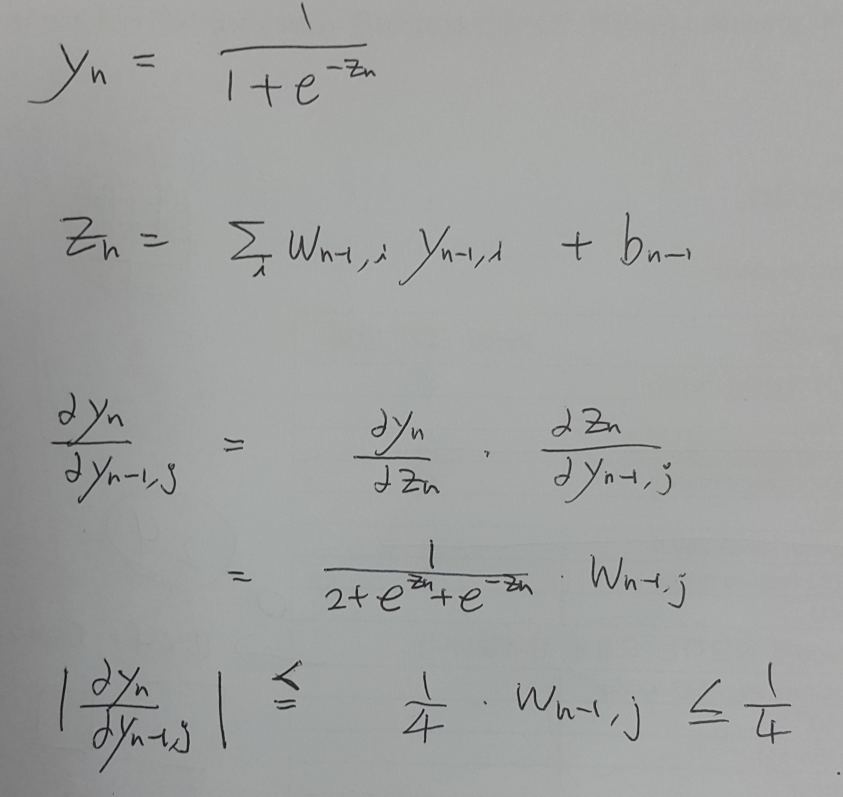 yₙ = 1 / (1 + e^(-zₙ))
zₙ = Σᵢ w_{n-1,i} y_{n-1,i} + b_{n-1}
∂yₙ/∂y_{n-1,j} = ∂yₙ/∂zₙ · ∂zₙ/∂y_{n-1,j}
= 1 / (2 + e^(zₙ) + e^(-zₙ)) · w_{n-1,j}
|∂yₙ/∂y_{n-1,j}| ≤ 1/4 · w_{n-1,j} ≤ 1/4